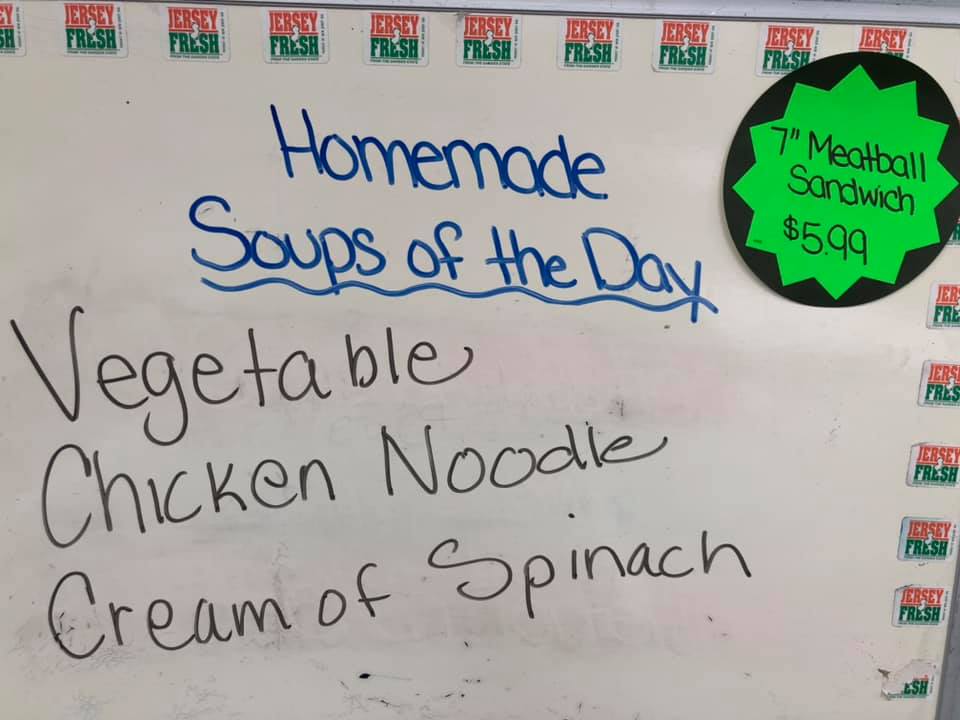 JERSEY FRESH
JERSEY FRESH
JERSEY FRESH
JERSEY FRESH
JERSEY FRESH
JERSEY FRESH
JERSEY FRESH
JERSEY FRESH
JERSEY
7" Meatball
Sandwich
$5.99
Homemade
Soups of the Day
Vegetable
Chicken Noodle
Cream of Spinach
JERSEY
FRESH
JERSEY
FRESH
JERSEY
FRESH